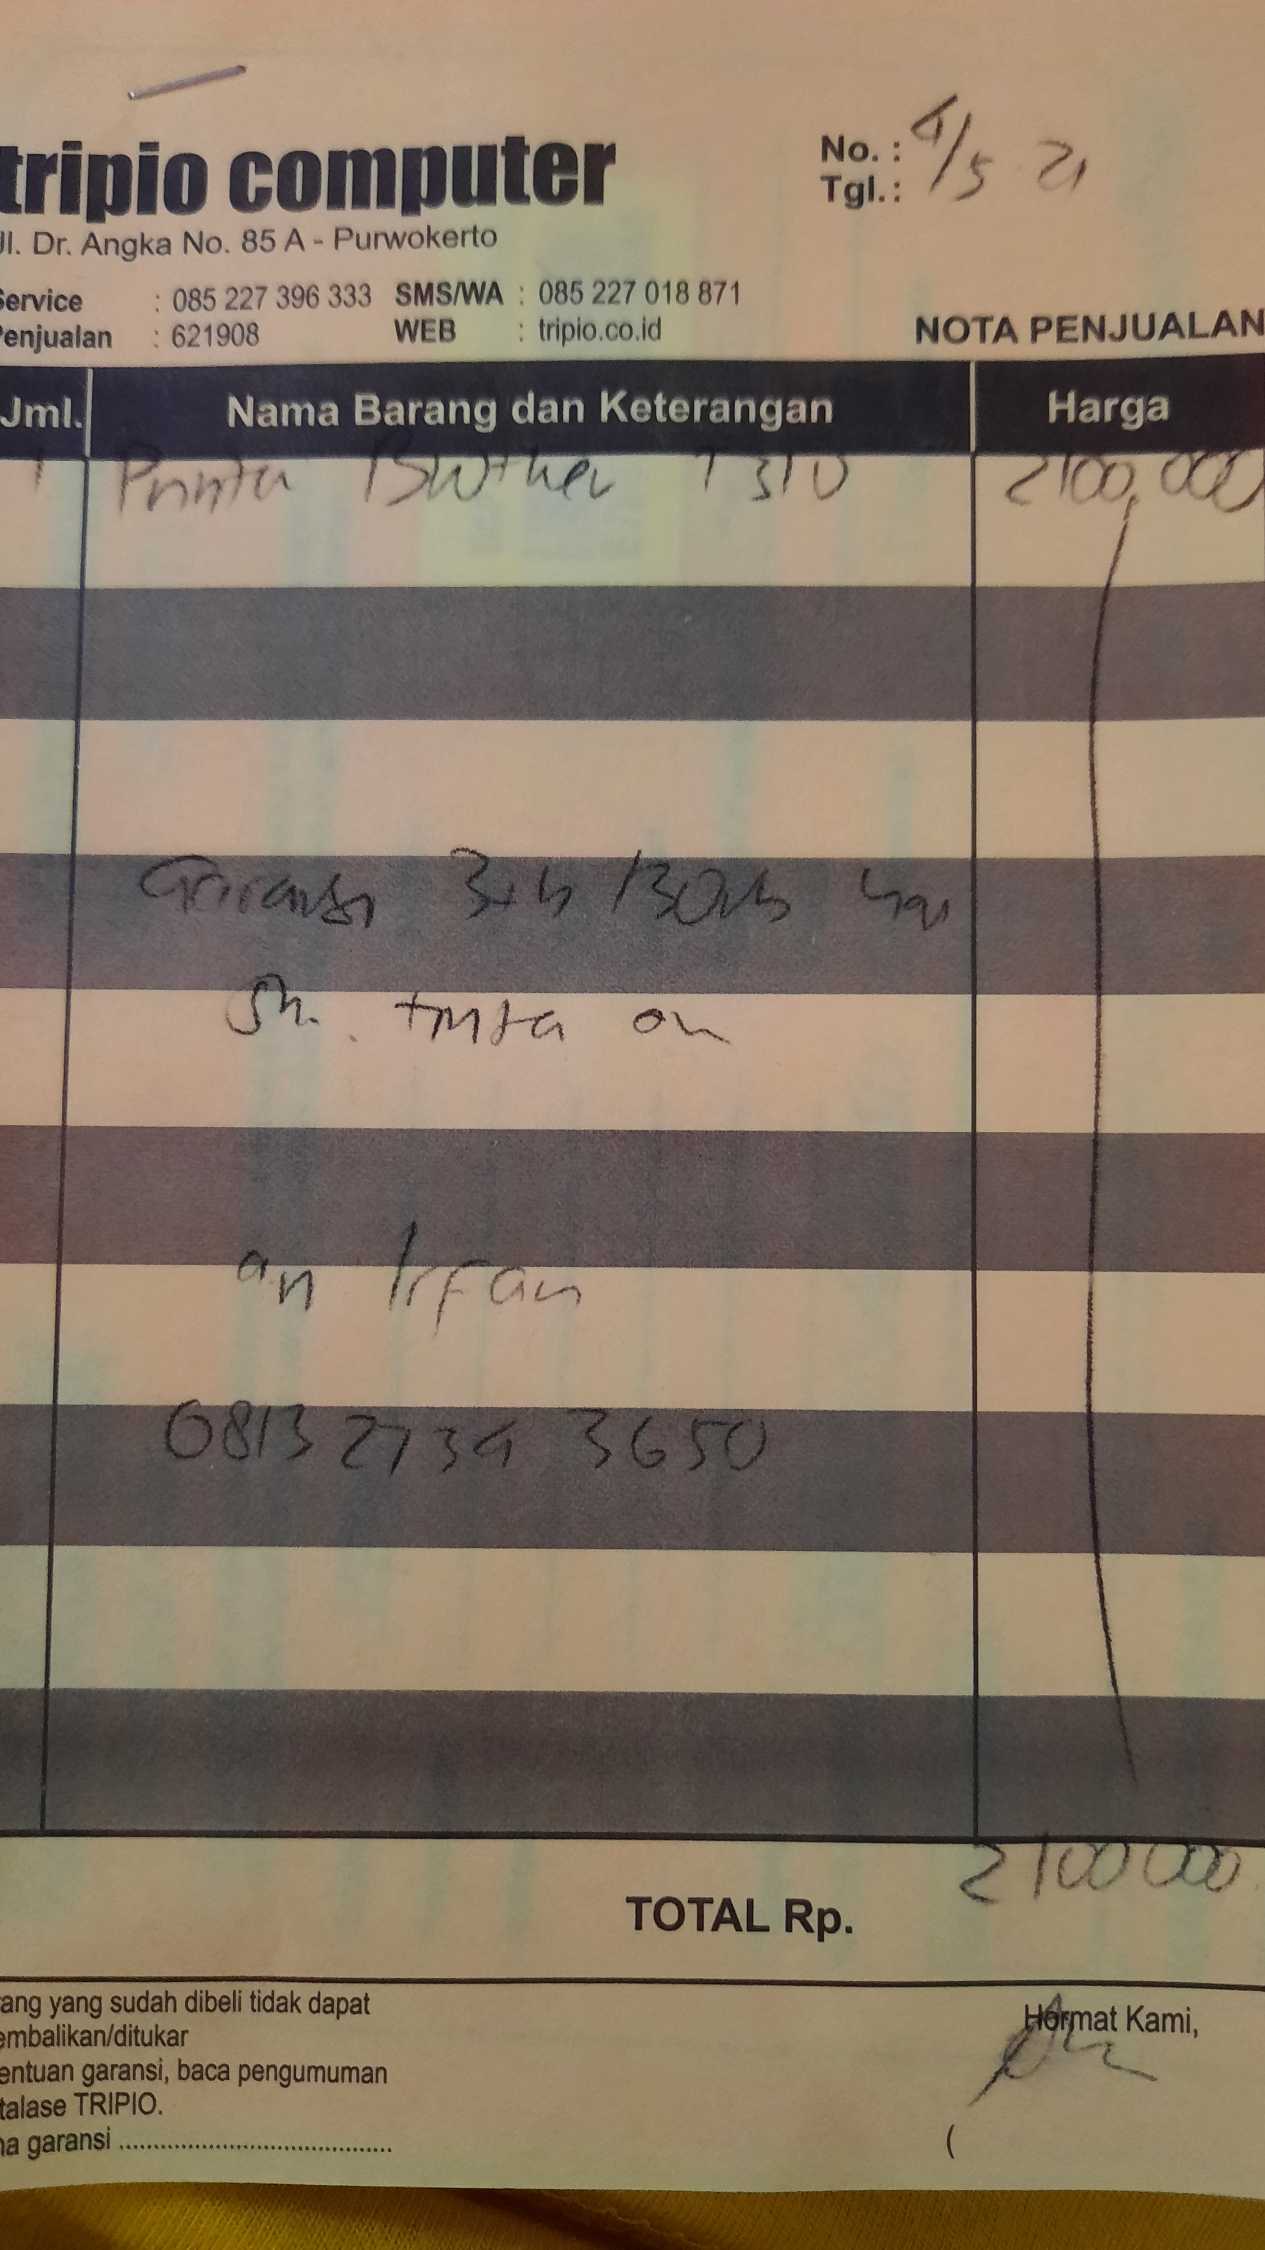 tripio computer
Jl. Dr. Angka No. 85 A - Purwokerto
No. :
Tgl. : 4/5 21
Service : 085 227 396 333 SMS/WA : 085 227 018 871
Penjualan : 621908 WEB : tripio.co.id
NOTA PENJUALAN
Jml. Nama Barang dan Keterangan Harga
1 Printer Brother T310 2100,000
Garansi 3th /
tinta
an Irfan
0813 2739 3650
TOTAL Rp. 2100000
ang yang sudah dibeli tidak dapat
embalikan/ditukar
entuan garansi, baca pengumuman
talase TRIPIO.
na garansi ........................................
Hormat Kami,
(